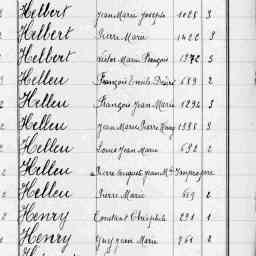 Helbert Jean Marie Joseph 1028 3
Helbert Pierre Marie 1422 3
Helbert Victor Marie François 1372 3
Helleu François Emile Désiré 689 2
Helleu François Jean Marie 1294 3
Helleu Jean Marie Pierre 1338 3
Helleu Louis Jean Marie 692 2
Helleu Pierre Jean Mie Impropre
Helleu Pierre Marie 2
Henry Constant Théophile 291 1
Henry Guy Jean Marie 961 2